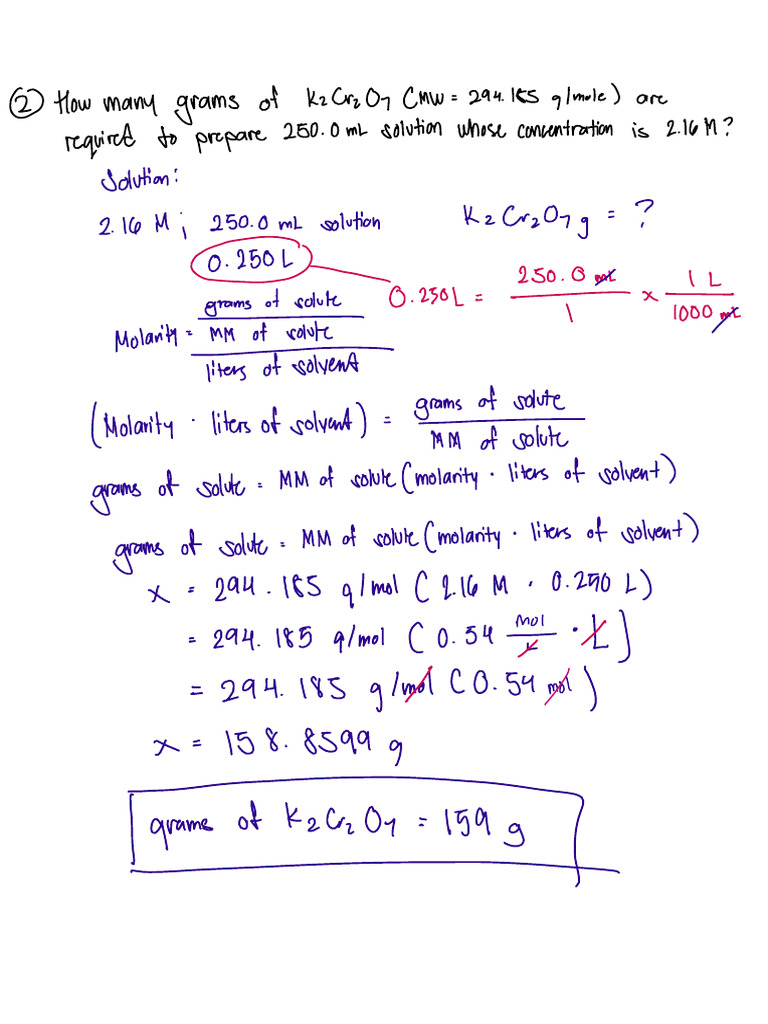 ② How many grams of K2Cr2O7 (MW = 294.185 g/mole) are
required to prepare 250.0 mL solution whose concentration is 2.16 M?
Solution:
2.16 M ; 250.0 mL solution K2Cr2O7 g = ?
0.250 L
0.250 L = 250.0 mL / 1 x 1 L / 1000 mL
Molarity = grams of solute / MM of solute / liters of solvent
(Molarity · liters of solvent) = grams of solute / MM of solute
grams of solute = MM of solute (molarity · liters of solvent)
grams of solute = MM of solute (molarity · liters of solvent)
x = 294.185 g/mol (2.16 M · 0.250 L)
= 294.185 g/mol (0.54 mol / L · L)
= 294.185 g/mol (0.54 mol)
x = 158.8599 g
grams of K2Cr2O7 = 159 g